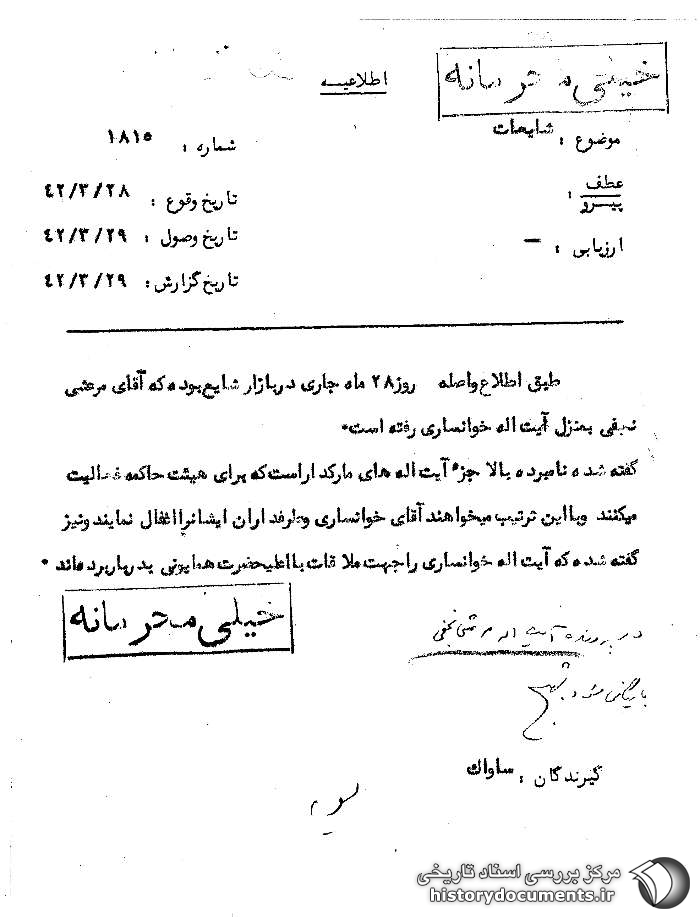 خیلی محرمانه
اطلاعیه
موضوع : شایعات
شماره : ۱۸۱۵
عطف
پیرو :
تاریخ وقوع : ۴۲/۳/۲۸
ارزیابی : —
تاریخ وصول : ۴۲/۳/۲۹
تاریخ گزارش : ۴۲/۳/۲۹
طبق اطلاع واصله روز ۲۸ ماه جاری دربازار شایع بوده که آقای مرعشی
نجفی بمنزل آیت اله خوانساری رفته است.
گفته شده نامبرده بالا جزء آیت اله های مارکداراست که برای هیئت حاکمه فعالیت
میکنند وبااین ترتیب میخواهند آقای خوانساری وطرفداران ایشانرااغفال نمایند ونیز
گفته شده که آیت اله خوانساری راجهت ملاقات بااعلیحضرت همایونی بدرباربرده‌اند .
خیلی محرمانه
در پرونده آیت اله مرعشی نجفی
بایگانی شود
گیرندگان : ساواک
مرکز بررسی اسناد تاریخی
historydocuments.ir